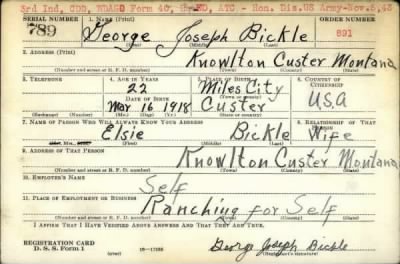 3rd Ind, CDD, WDAGO Form 40, ATC - Hon. Dis. US Army-Nov. 5, 43
SERIAL NUMBER 1. NAME (Print) ORDER NUMBER
789 George Joseph Bickle 891
(First) (Middle) (Last)
2. ADDRESS (Print)
Knowlton Custer Montana
(Number and street or R. F. D. number) (Town) (County) (State)
3. TELEPHONE 4. AGE IN YEARS 5. PLACE OF BIRTH 6. COUNTRY OF CITIZENSHIP
22 Miles City
DATE OF BIRTH (Town or county)
Mar 16 1918 Custer U.S.A
(Exchange) (Number) (Mo.) (Day) (Yr.) (State or country)
7. NAME OF PERSON WHO WILL ALWAYS KNOW YOUR ADDRESS 8. RELATIONSHIP OF THAT PERSON
Elsie Bickle Wife
(First) (Middle) (Last)
9. ADDRESS OF THAT PERSON
Knowlton Custer Montana
(Number and street or R. F. D. number) (Town) (County) (State)
10. EMPLOYER'S NAME
Self
11. PLACE OF EMPLOYMENT OR BUSINESS
Ranching for Self
(Number and street or R. F. D. number) (Town) (County) (State)
I AFFIRM THAT I HAVE VERIFIED ABOVE ANSWERS AND THAT THEY ARE TRUE.
REGISTRATION CARD
D. S. S. Form 1 16-17105 George Joseph Bickle